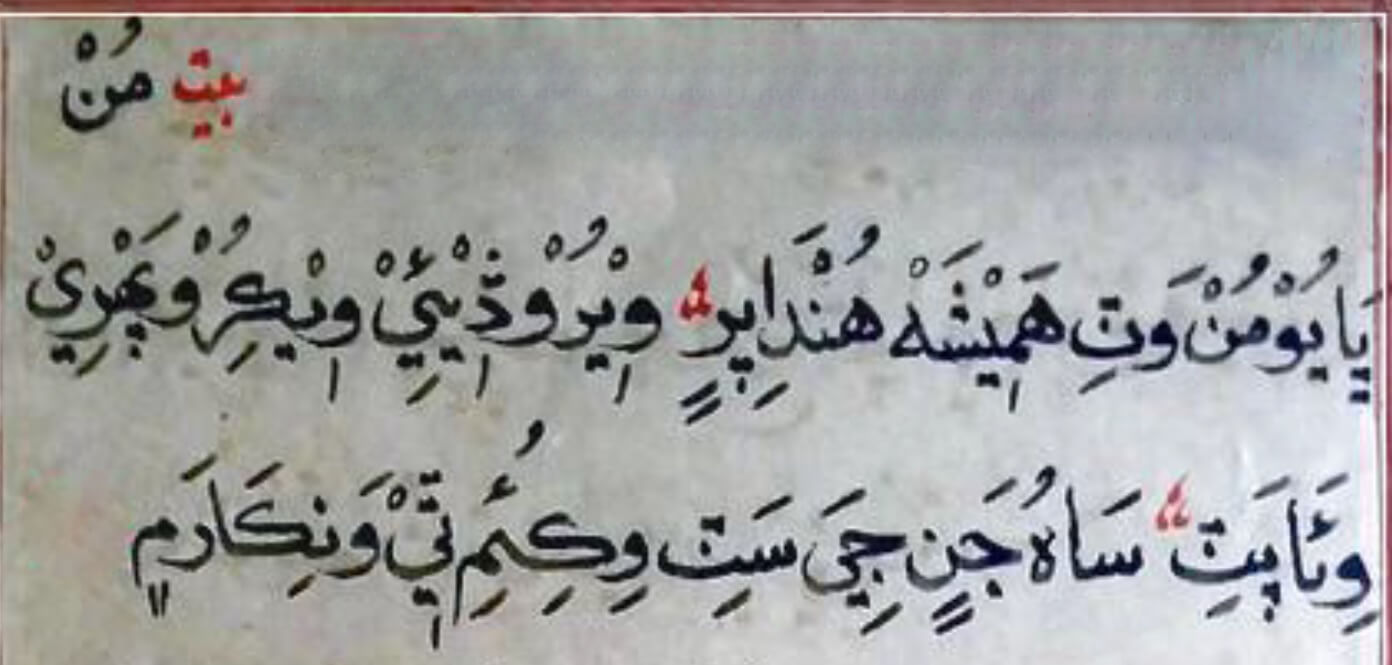 بيت مُنْ
پَايوْمُنْ وَتِ هَمِيْشَہْ هُنْدَاِپرٍ، وِيْرُوْ ڏِيْئِيْ وِيْڪِرُوْ پَهْرِيْ
وِئَاپَتِ، سَاهُ جَنٍ جِيَ سَتِ وِڪِئَمِ تِيْ وَنِڪَارَمٍ